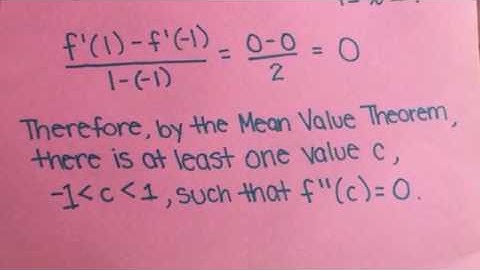 f'(1)-f'(-1) / 1-(-1) = 0-0 / 2 = 0
Therefore, by the Mean Value Theorem,
there is at least one value c,
-1<c<1, such that f"(c)=0.